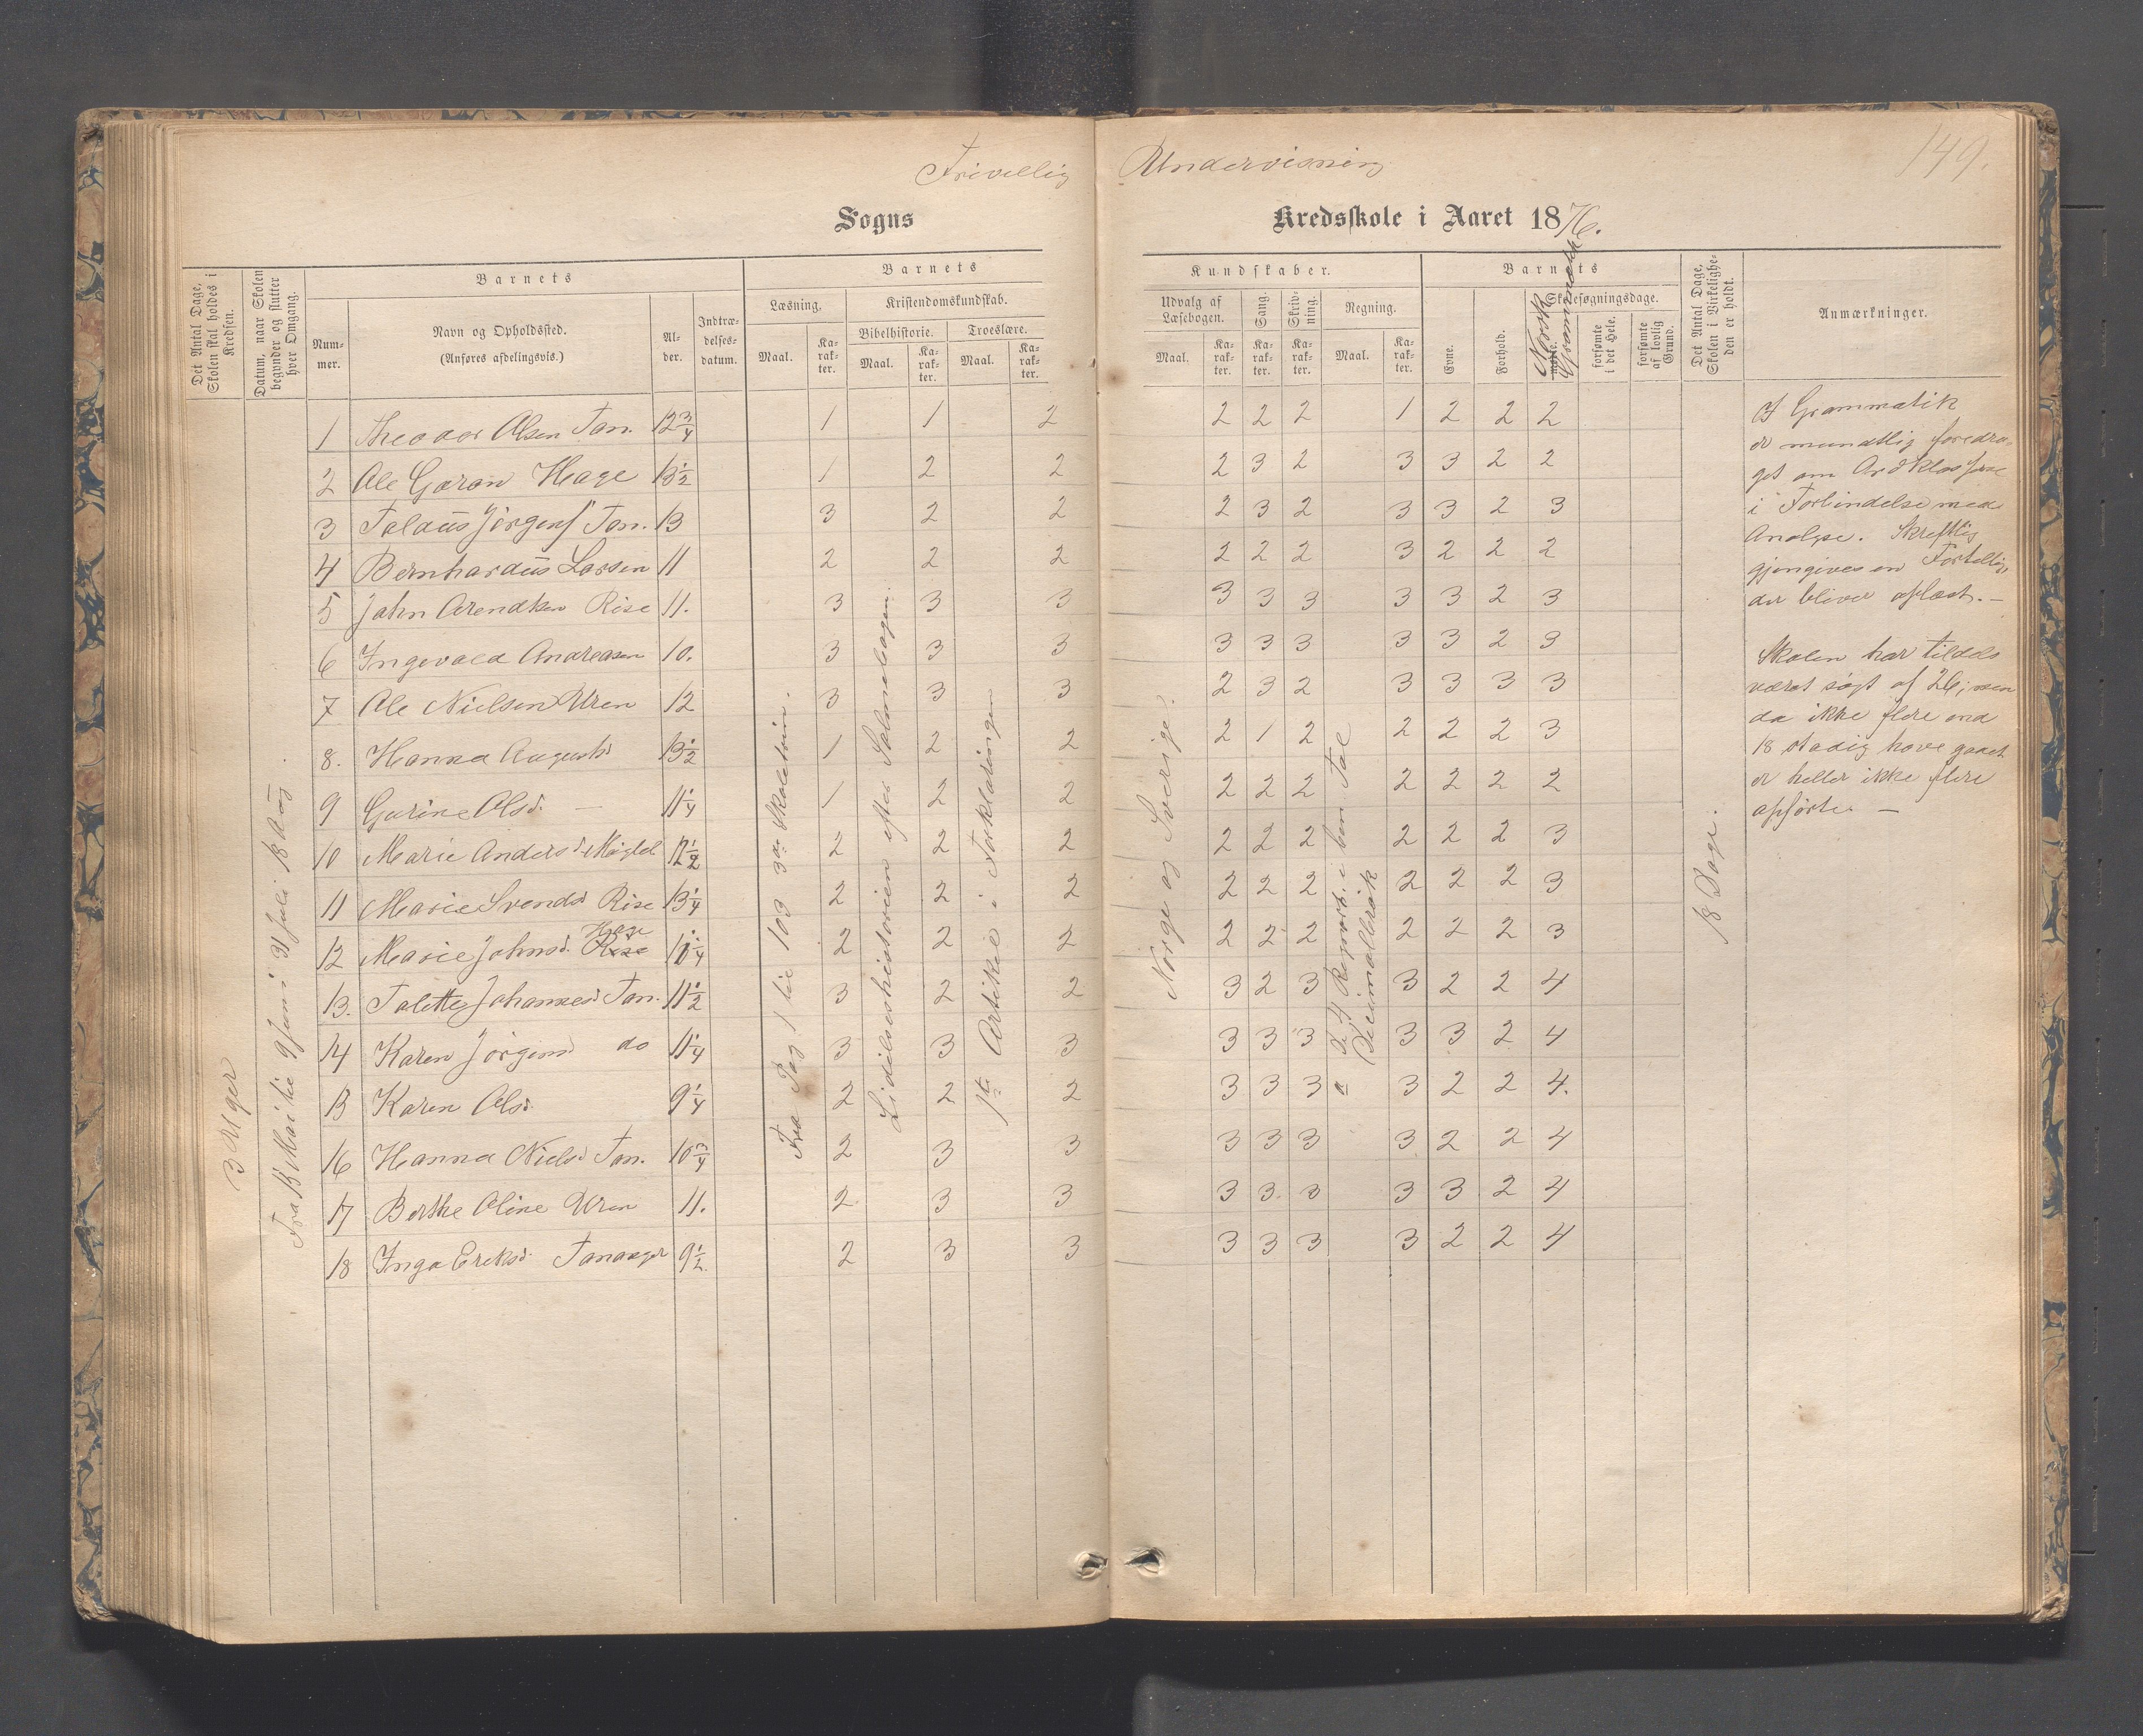 Frivillig Undervisning
149.
Sogns Kredsskole i Aaret 1876.
Det Antal Dage, Skolen skal holdes i Kredsen.
Datum, naar Skolen begynder og slutter hver Omgang.
Barnets
Nummer.
Navn og Opholdssted.
(Anføres afdelingsvis.)
Alder.
Indtrædelsesdatum.
Barnets
Læsning.
Maal.
Karakter.
Kristendomskundskab.
Bibelhistorie.
Maal.
Karakter.
Troeslære.
Maal.
Karakter.
Kundskaber.
Udvalg af Læsebogen.
Maal.
Karakter.
Sang.
Karakter.
Skrivning.
Karakter.
Regning.
Maal.
Karakter.
Barnets
Evne.
Forhold.
Norsk Grammatik
Skolesøgningsdage.
forsømte i det Hele.
forsømte af lovlig Grund.
Det Antal Dage, Skolen i Virkeligheden er holdt.
Anmærkninger.
3 Uger
9 Juni 31 Juli 18 Aug.
Fra Pag 1 til 103 3die Skoletrin.
Lidelseshistorien efter Salmebogen.
1ste Artikel i Forklaringen
Norge og Sverige.
i ben. Tal
Decimalbrøk
18 Dage.
1 Theodor Olsen Tan. 12 3/4 1 1 2 2 2 2 1 2 2 2
2 Ole Gøran Hage 13 1/2 1 2 2 2 3 2 3 3 2 2
3 Taláus Jørgens Tan. 13 3 2 2 2 3 2 3 3 2 3
4 Bernhardus Larsen 11 2 2 2 2 2 2 3 2 2 2
5 John Arendsen Risa 11. 3 3 3 3 3 3 3 3 2 3
6 Ingevald Andreasen 10. 3 3 3 3 3 3 3 3 2 3
7 Ole Nielsen Uren 12 3 3 3 2 3 2 3 3 3 3
8. Hanna Augustsd 13 1/2 1 2 2 2 1 2 2 2 2 3
9 Gurine Olsd. — 11 1/4 1 2 2 2 2 2 2 2 2 2
10 Marie Andersd 12 1/2 2 2 2 2 2 2 2 2 2 3
11 Marie Svendsd Risa 13 1/4 2 2 2 2 2 2 2 2 2 3
12 Marie Johnsd. Hage 2 2 2 2 2 2 2 2 2 3
13. Talette Johannesd Tan. 11 1/2 3 2 2 3 2 3 3 2 2 4
14 Karen Jørgensd do 11 1/4 3 3 3 3 3 3 3 3 2 4
15 Karen Olsd. 9 1/4 2 2 2 3 3 3 3 2 2 4.
16 Hanna Nielsd Tan. 10 3/4 2 3 3 3 3 3 3 2 2 4
17 Berthe Oline Uren 11. 2 3 3 3 3 3 3 3 2 4
18 Inga Eriksd. Tananger 9 1/2. 2 3 3 3 3 3 3 2 2 4
I Grammatik
er mundtlig foredra-
get om Ordklasserne
i Forbindelse med
Analyse. Skriftlig
gjengives en Fortælling,
der bliver oplæst. —
Skolen har tildels
været søgt af 26, men
da ikke flere end
18 stadig have gaaet
er heller ikke flere
opførte. —